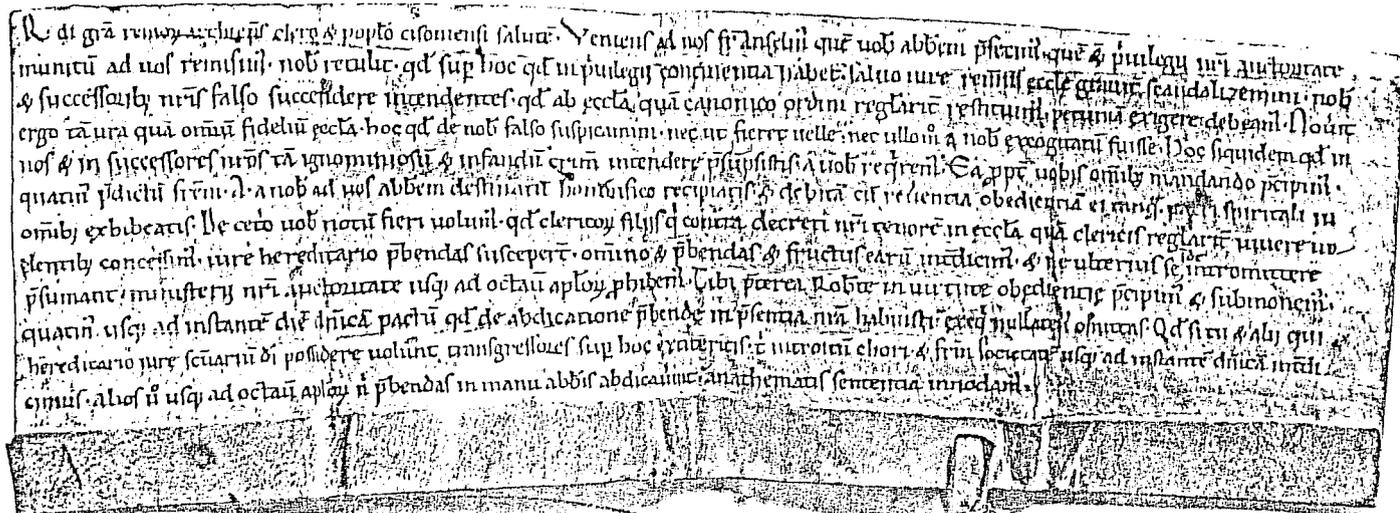 R. di grã remoꝝ archiep̃s clero & populo cisoniensi salutẽ. Veniens ad nos fr̃ Anselm̃ quẽ uob̃ abbẽm p̃fecim̃, quẽ & p̃uilegii nr̃i auctoritate
munitũ ad uos remisim̃, nob̃ retulit, qd̃ sup̃ hoc qd̃ in p̃uilegii continentia habet̃, saluo iure remẽsis eccl̃e grauit̃ scandalizemini, nob̃
& successorib; nr̃is falso succẽsere intendentes, qd̃ ab eccl̃a quã canonico ordini regl̃arit̃ restituim̃, pecunia exigere debeam̃. Nouit
ergo tã ura quã om̃iũ fideliũ eccl̃a, hoc qd̃ de nob̃ falso suspicamini, nec ut fieret uelle, nec ullo m̊ a nob̃ excogitatũ fuisse. Hoc siquidem qd̃ in
nos & in successores nr̃os tã ignominiosũ & infandũ crim̃ intendere p̃sũpsistis, a uob̃ req̃rem̃. Ea ppt̃ uobis om̃ib; mandando p̃cipim̃,
quatin̾ p̃dictũ fr̃em A. a nob̃ ad uos abbẽm destinatũ honorifico recipiatis, & debitã cũ reuerentia obedientiã ei tanq̃ pat̃i spiritali in
om̃ib; exhibeatis. De cet̃o uob̃ notũ fieri uolum̃, qd̃ clericoꝝ filiis q̃ contra decreti nr̃i tenorẽ in eccl̃a quã clericis regl̃arit̃ uiuere uo
lentib; concessim̃, iure hereditario p̃bendas suscepert̃, om̃ino & p̃bendas & fructus earũ int̃dicim̃, & ne ulterius se intromittere
p̃sumant, ministerii nr̃i auctoritate usq; ad octau̾ ap̃loꝝ p̃hibem̃. Tibi p̃terea Rob̃te in uirtute obediẽtie p̃cipim̾ & submonem̃,
quatin̾ usq; ad instantẽ diẽ dñicã pactũ qd̃ de abdicatione p̃bende in p̃sentia nr̃a habuisti, exeq̃ nullaten̾ omittas. Qd̃ si tu & alii qui
hereditario iure sc̃uariũ di possidere uolunt, transgressores sup̃ hoc extiteritis, t̃ introitũ chori & fr̃m societatẽ usq; ad instantẽ dñicã int̃di
cimus, alios ũ usq; ad octau̾ ap̃loꝝ ñ p̃bendas in manu abb̃is abdicauint, anathematis sententia innodam̃.